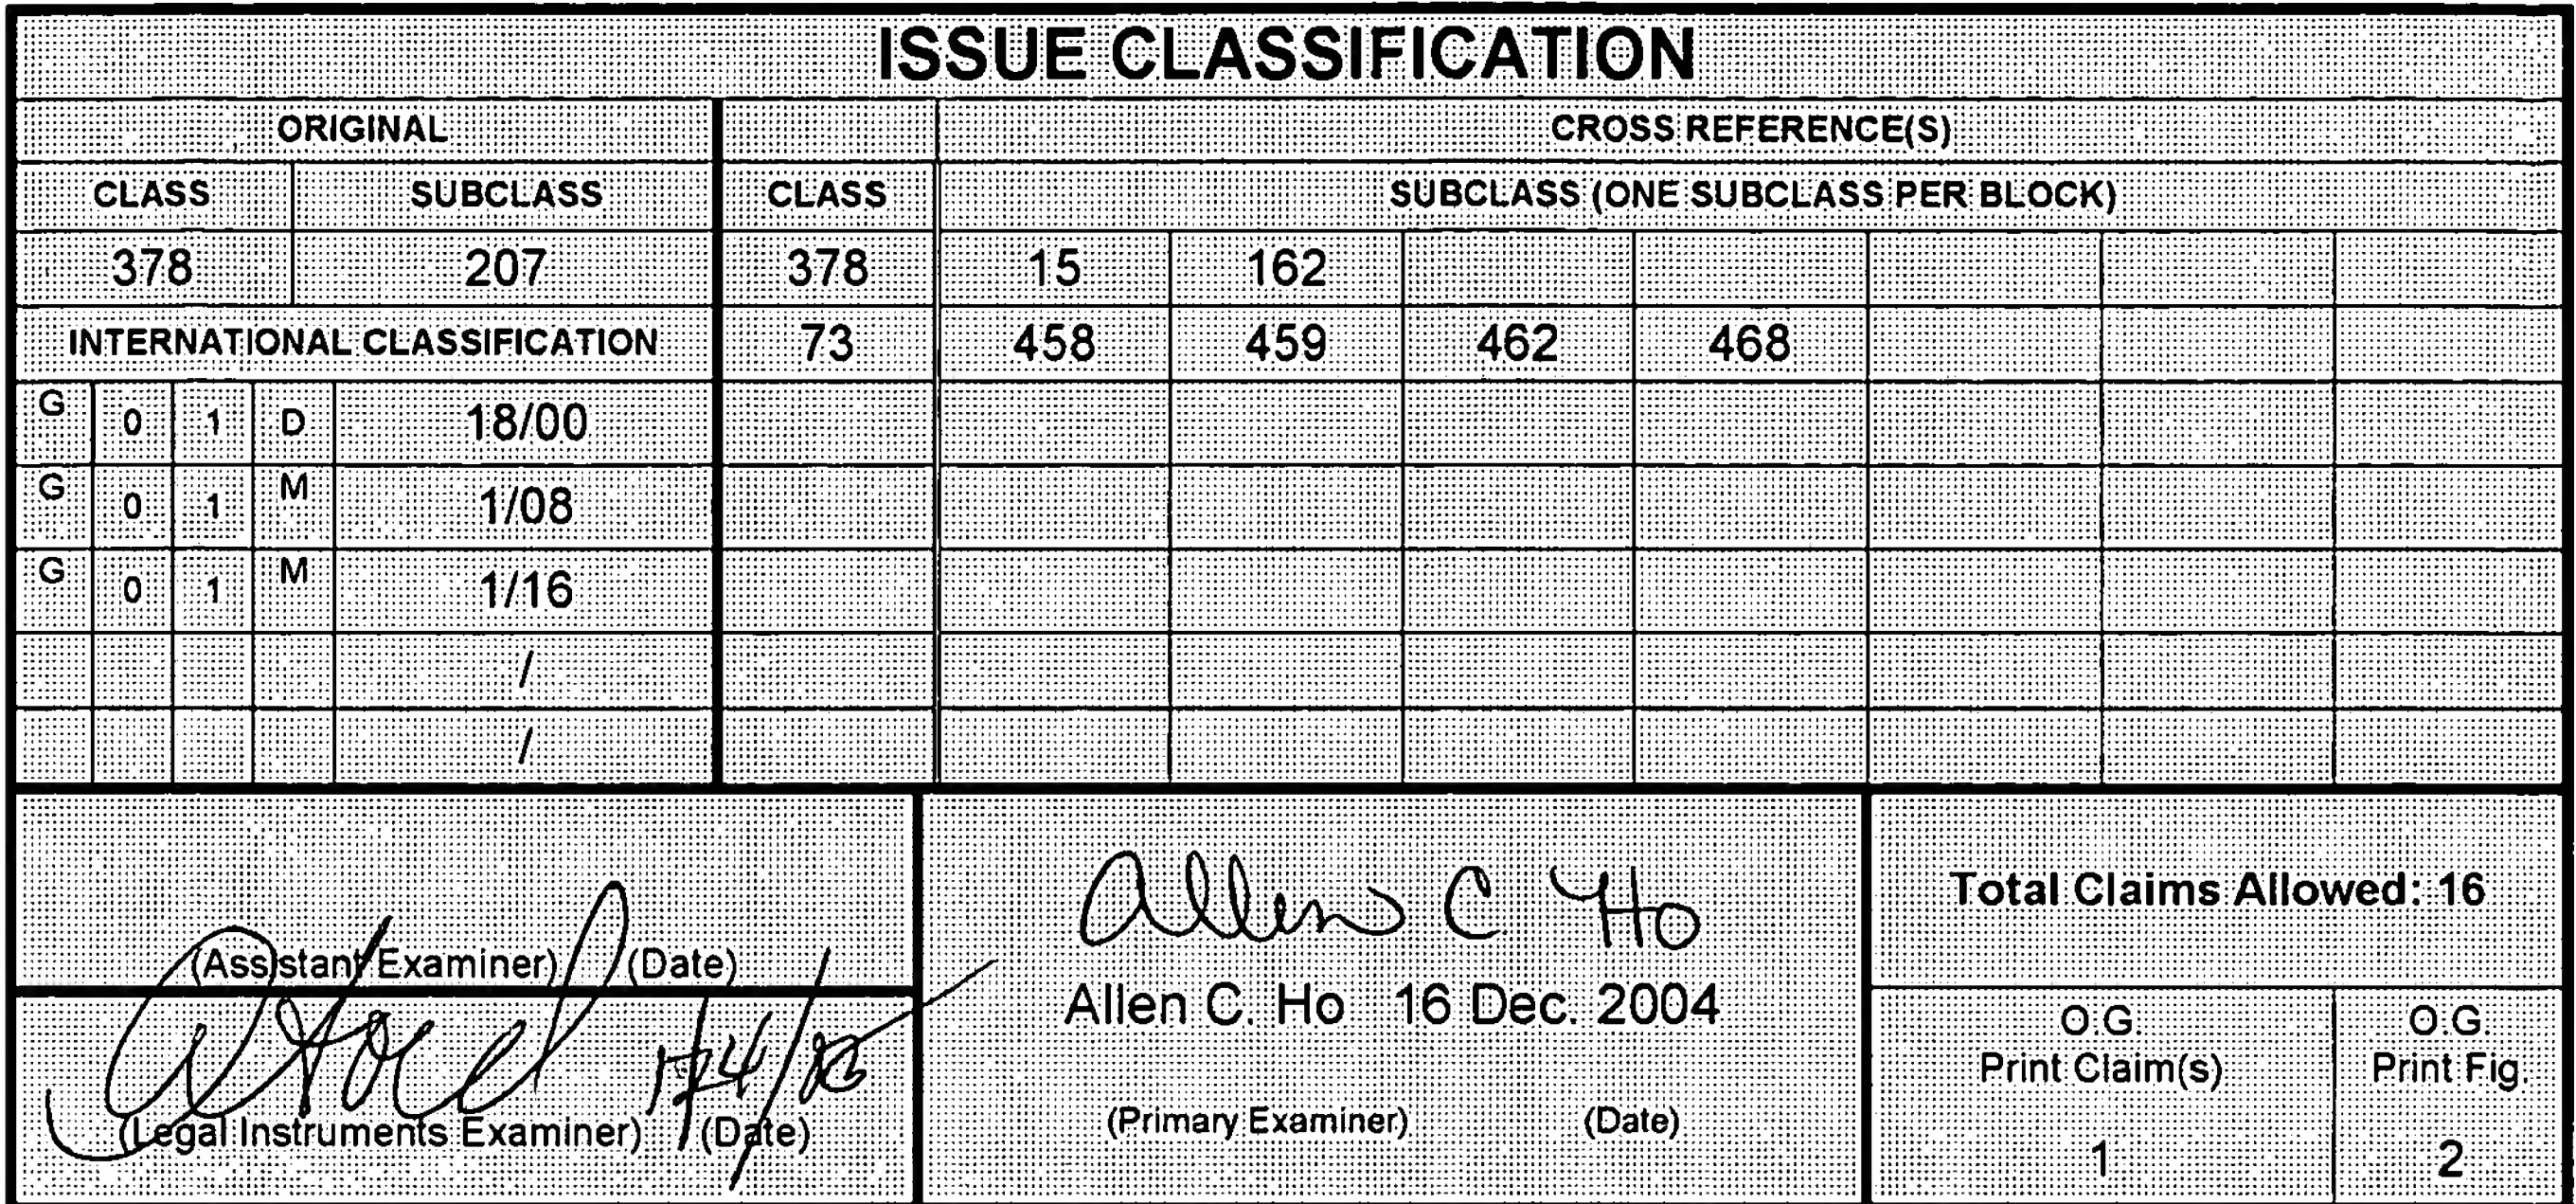 ISSUE CLASSIFICATION
ORIGINAL CROSS REFERENCE(S)
CLASS SUBCLASS CLASS SUBCLASS (ONE SUBCLASS PER BLOCK)
378 207 378 15 162
INTERNATIONAL CLASSIFICATION 73 458 459 462 468
G 0 1 D 18/00
G 0 1 M 1/08
G 0 1 M 1/16
/
/
(Assistant Examiner) (Date)
(Legal Instruments Examiner) (Date)
Allen C. Ho
Allen C. Ho 16 Dec. 2004
(Primary Examiner) (Date)
Total Claims Allowed: 16
O.G.
Print Claim(s)
1
O.G.
Print Fig.
2